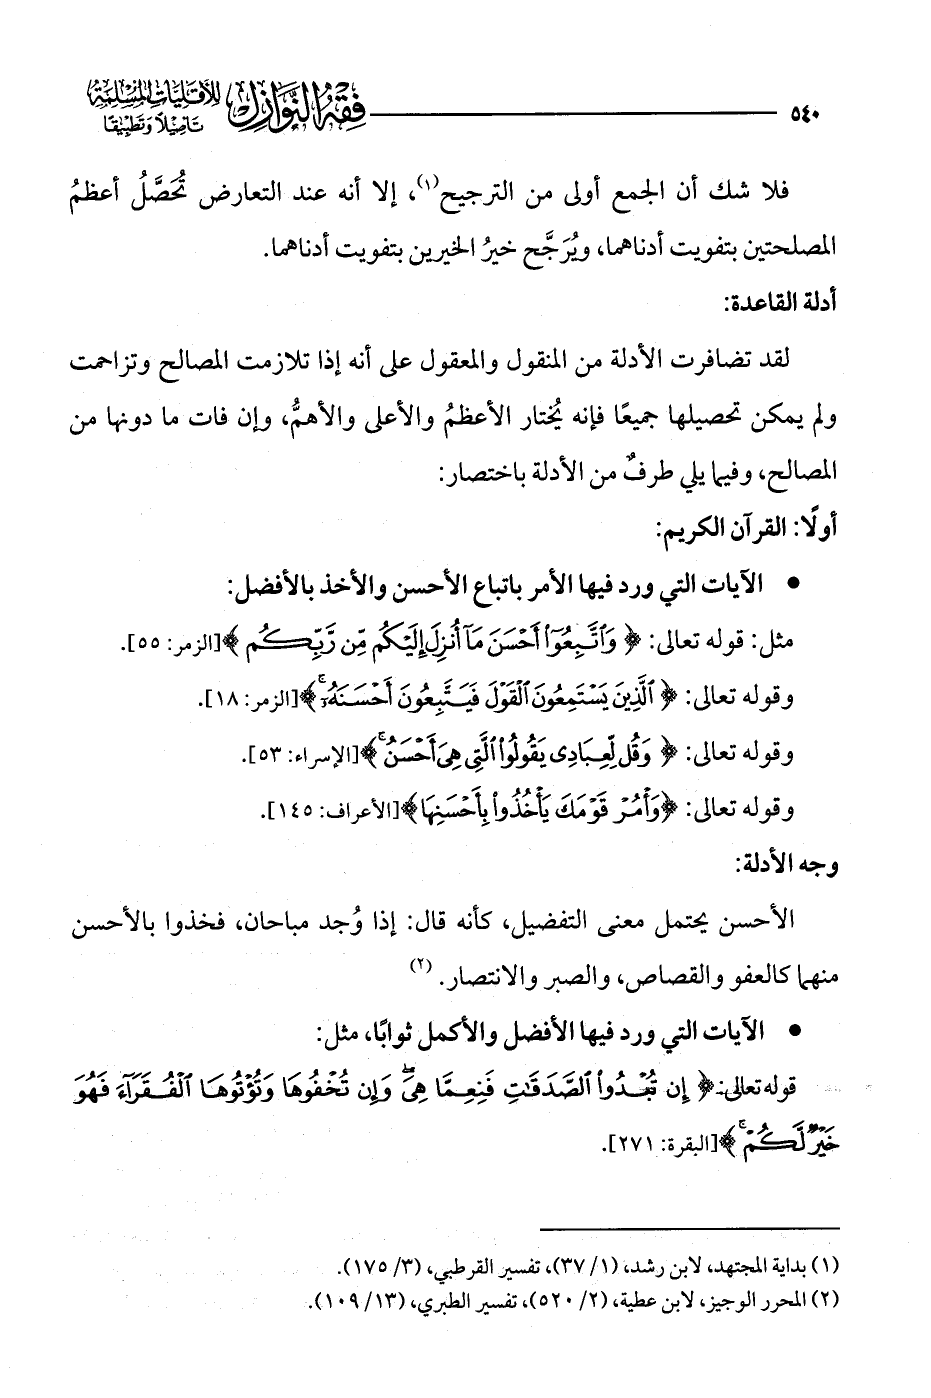 ٥٤٠
فقه النوازل للأقليات المسلمة
تأصيلاً وتطبيقًا
فلا شك أن الجمع أولى من الترجيح(١)، إلا أنه عند التعارض تُحَصَّلُ أعظمُ
المصلحتين بتفويت أدناهما، ويُرَجَّح خيرُ الخيرين بتفويت أدناهما.
أدلة القاعدة:
لقد تضافرت الأدلة من المنقول والمعقول على أنه إذا تلازمت المصالح وتزاحمت
ولم يمكن تحصيلها جميعًا فإنه يُختار الأعظمُ والأعلى والأهمُّ، وإن فات ما دونها من
المصالح، وفيما يلي طرفٌ من الأدلة باختصار:
أولًا: القرآن الكريم:
• الآيات التي ورد فيها الأمر باتباع الأحسن والأخذ بالأفضل:
مثل: قوله تعالى: ﴿ وَٱتَّبِعُوٓا۟ أَحْسَنَ مَآ أُنزِلَ إِلَيْكُم مِّن رَّبِّكُم ﴾[الزمر: ٥٥].
وقوله تعالى: ﴿ ٱلَّذِينَ يَسْتَمِعُونَ ٱلْقَوْلَ فَيَتَّبِعُونَ أَحْسَنَهُۥٓ ۚ ﴾[الزمر: ١٨].
وقوله تعالى: ﴿ وَقُل لِّعِبَادِى يَقُولُوا۟ ٱلَّتِى هِىَ أَحْسَنُ ۚ ﴾[الإسراء: ٥٣].
وقوله تعالى: ﴿وَأْمُرْ قَوْمَكَ يَأْخُذُوا۟ بِأَحْسَنِهَا﴾[الأعراف: ١٤٥].
وجه الأدلة:
الأحسن يحتمل معنى التفضيل، كأنه قال: إذا وُجد مباحان، فخذوا بالأحسن
منهما كالعفو والقصاص، والصبر والانتصار. (٢)
• الآيات التي ورد فيها الأفضل والأكمل ثوابًا، مثل:
قوله تعالى: ﴿ إِن تُبْدُوا۟ ٱلصَّدَقَـٰتِ فَنِعِمَّا هِىَ ۖ وَإِن تُخْفُوهَا وَتُؤْتُوهَا ٱلْفُقَرَآءَ فَهُوَ
خَيْرٌ لَّكُمْ ۚ ﴾[البقرة: ٢٧١].
(١) بداية المجتهد، لابن رشد، (١/ ٣٧)، تفسير القرطبي، (٣/ ١٧٥).
(٢) المحرر الوجيز، لابن عطية، (٢/ ٥٢٠)، تفسير الطبري، (١٣/ ١٠٩).